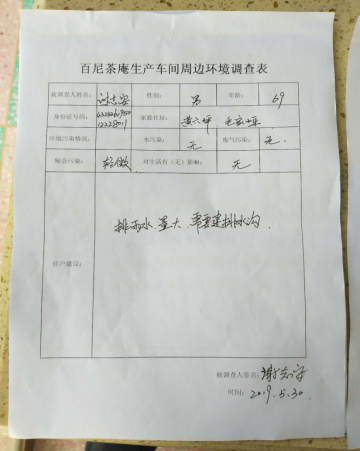 百尼茶庵生产车间周边环境调查表
被调查人姓名: 谢志安 性别: 男 年龄: 69
身份证号码: 家庭住址: 黄六坪
环境污染情况: 水污染: 无 废气污染: 无.
噪音污染: 轻微 对生活有(无)影响: 无
住户建议: 排雨水量大,需要建排水沟.
被调查人签名: 谢志安
时间: 2019.5.30.